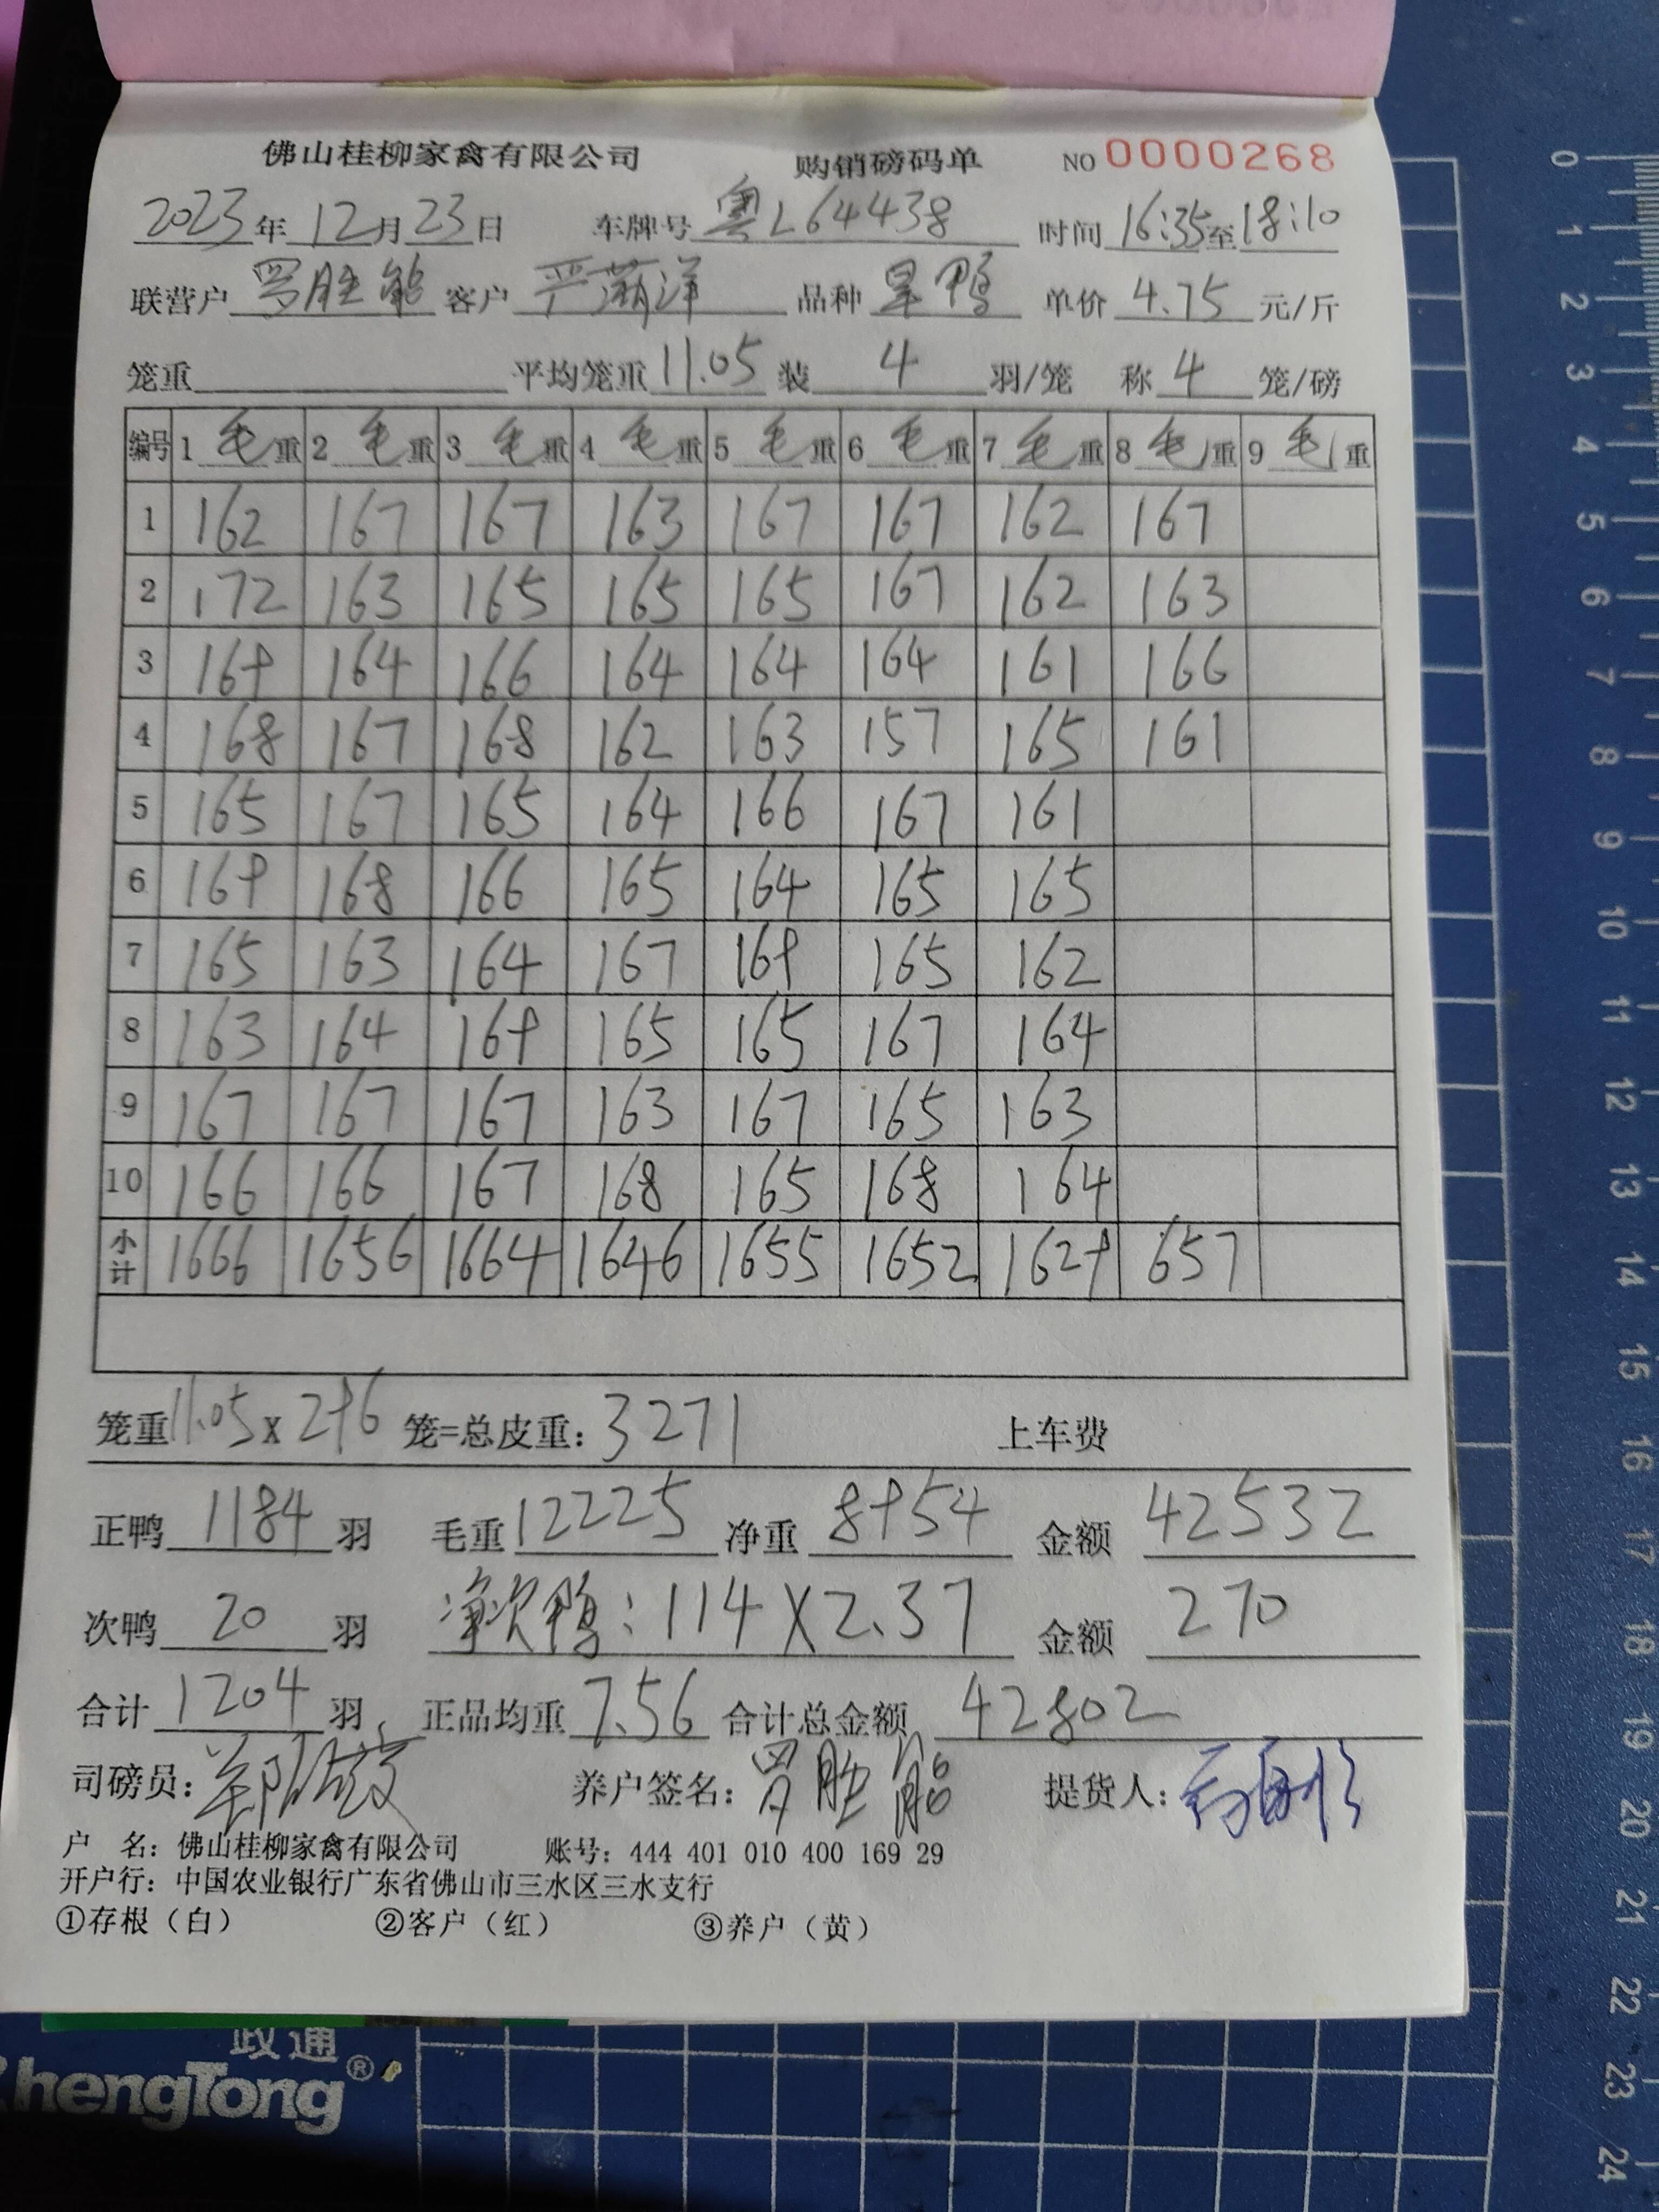 佛山桂柳家禽有限公司 购销磅码单 NO 0000268
2023年12月23日 车牌号 粤L64438 时间 16:35至18:10
联营户 罗胜能 客户 严满洋 品种 旱鸭 单价 4.75 元/斤
笼重 平均笼重 11.05 装 4 羽/笼 称 4 笼/磅
编号 1 毛重 2 毛重 3 毛重 4 毛重 5 毛重 6 毛重 7 毛重 8 毛重 9 毛重
1 162 167 167 163 167 167 162 167
2 172 163 165 165 165 167 162 163
3 169 164 166 164 164 164 161 166
4 168 167 168 162 163 157 165 161
5 165 167 165 164 166 167 161
6 169 168 166 165 164 165 165
7 165 163 164 167 169 165 162
8 163 164 169 165 165 167 164
9 167 167 167 163 167 165 163
10 166 166 167 168 165 168 164
小计 1666 1656 1664 1646 1655 1652 1629 657
笼重 11.05 x 296 笼=总皮重: 3271 上车费
正鸭 1184 羽 毛重 12225 净重 8954 金额 42532
次鸭 20 羽 净次鸭: 114 X 2.37 金额 270
合计 1204 羽 正品均重 7.56 合计总金额 42802
司磅员: 养户签名: 罗胜能 提货人:
户 名: 佛山桂柳家禽有限公司 账号: 444 401 010 400 169 29
开户行: 中国农业银行广东省佛山市三水区三水支行
①存根（白） ②客户（红） ③养户（黄）
政通®
ZhengTong
0
1
2
3
4
5
6
7
8
9
10
11
12
13
14
15
16
17
18
19
20
21
22
23
24